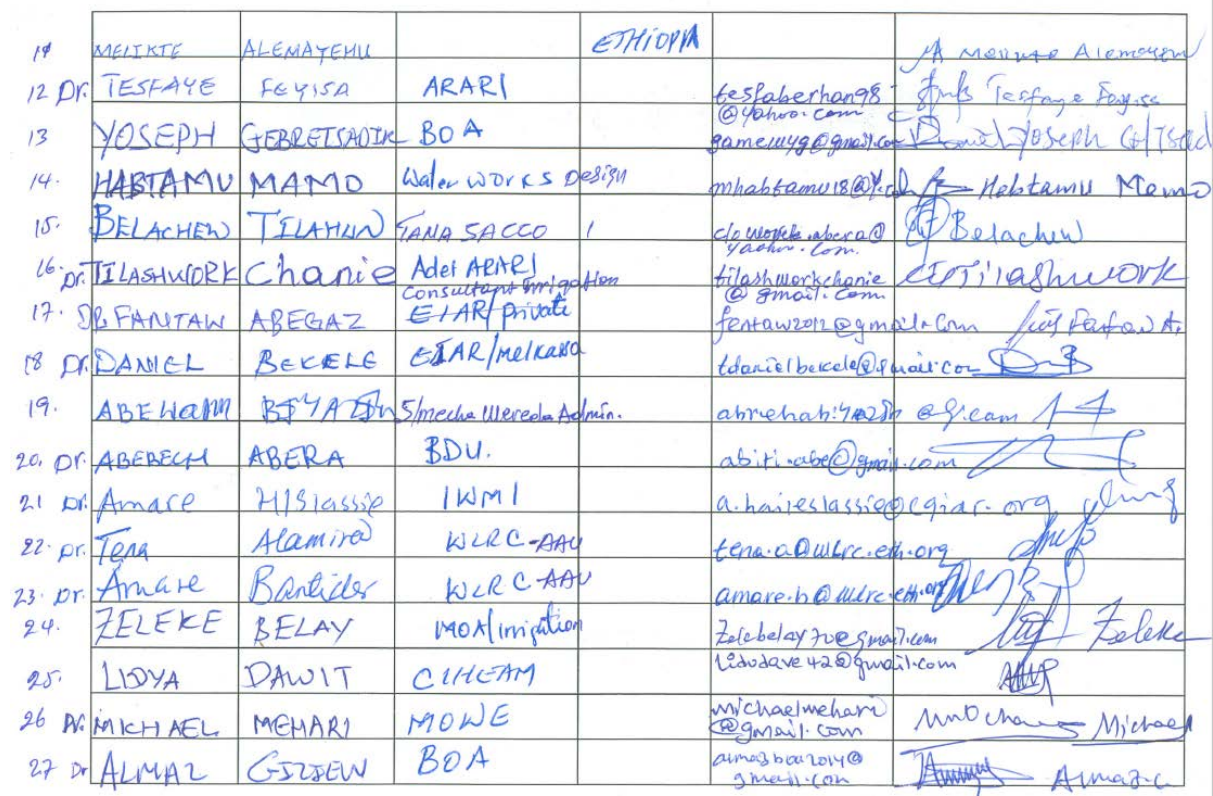 MELIKTE ALEMAYEHU ETHIOPIA Alemayehu
12 Dr. TESFAYE FEYISA ARARI tesfaberhan98 Tesfaye Feyissa
@yahoo.com
13 YOSEPH GEBRETSADIK BOA gamewyg@gmail.com Yoseph G/Tsad
14. HABTAMU MAMO Water works Design Habtamu Mamo
15. BELACHEW TILAHUN TANA SACCO Belachew
yahoo.com.
16. Dr. TILASHWORK Chanie Adet ARARI tilashworkchanie Tilashwork
Consultant Irrigation @gmail.com
17. DR FANTAW ABEGAZ EIAR/private fentaw2012@gmail.com Fantaw A.
18 Dr. DANIEL BEKELE EIAR/Melkassa tdanielbekele@gmail.com
19. S/mecha Wereda Admin.
20. Dr. ABEBECH ABERA BDU. abiti.abe@gmail.com
21 Dr. Amare H/Slassie IWMI a.haileslassie@cgiar.org
22. Dr. Tena Alamirew WLRC-AAU tena.a@wlrc-eth.org
23. Dr. Amare Bantider WLRC-AAU amare.b@wlrc-eth.org
24. ZELEKE BELAY MOA/irrigation Zelebelay70@gmail.com Zeleke
25. LIDYA DAWIT CIHEAM lidudave42@gmail.com
26 MICHAEL MEHARI MOWE michaelmehari Michael
@gmail.com
27 Dr ALMAZ GIZIEW BOA almazboa2014@ Almaz.G
gmail.com